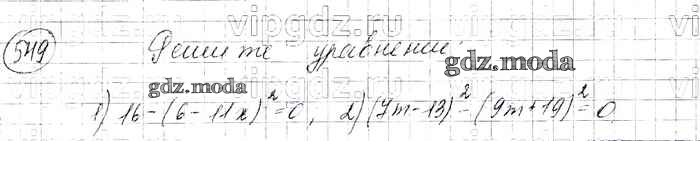 vipgdz.ru vipgdz.ru
549 Решите уравнение:
gdz.moda gdz.moda
1) 16-(6-11x)²=0, 2) (7m-13)²-(9m+19)²=0